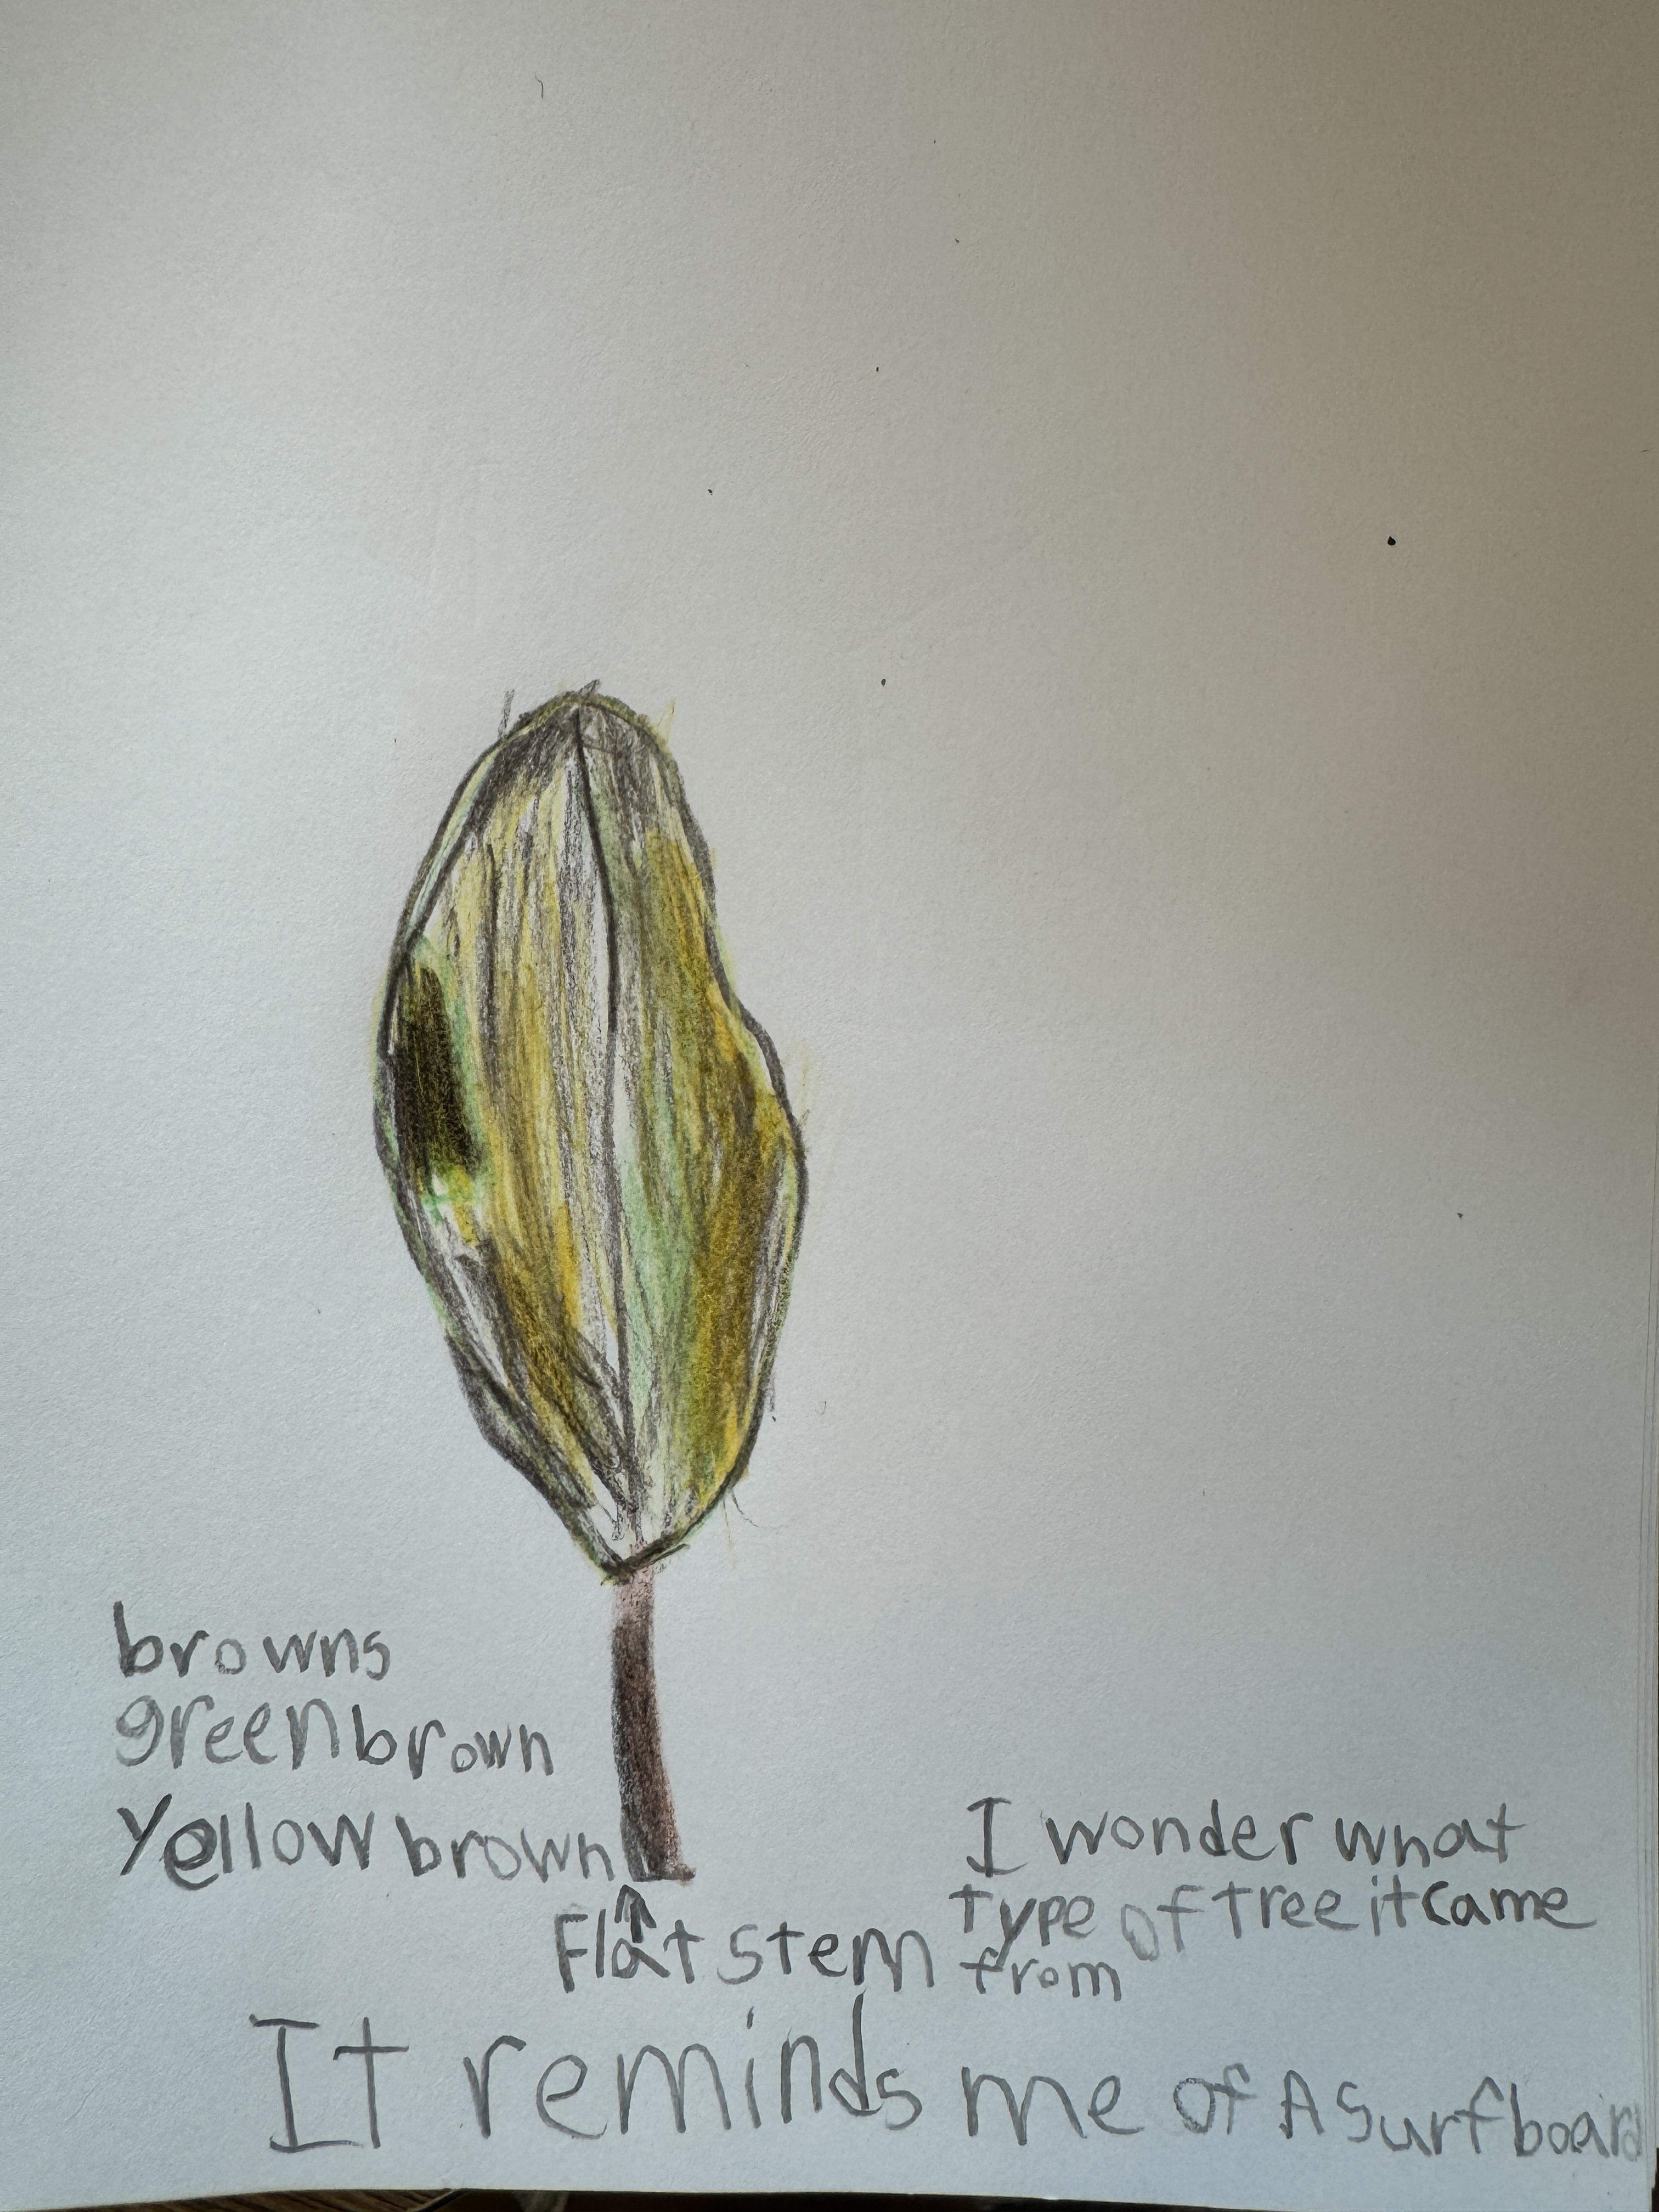 browns
green brown
Yellow brown
Flat stem
I wonder what
type of tree it came
from
It reminds me of A Surfboard